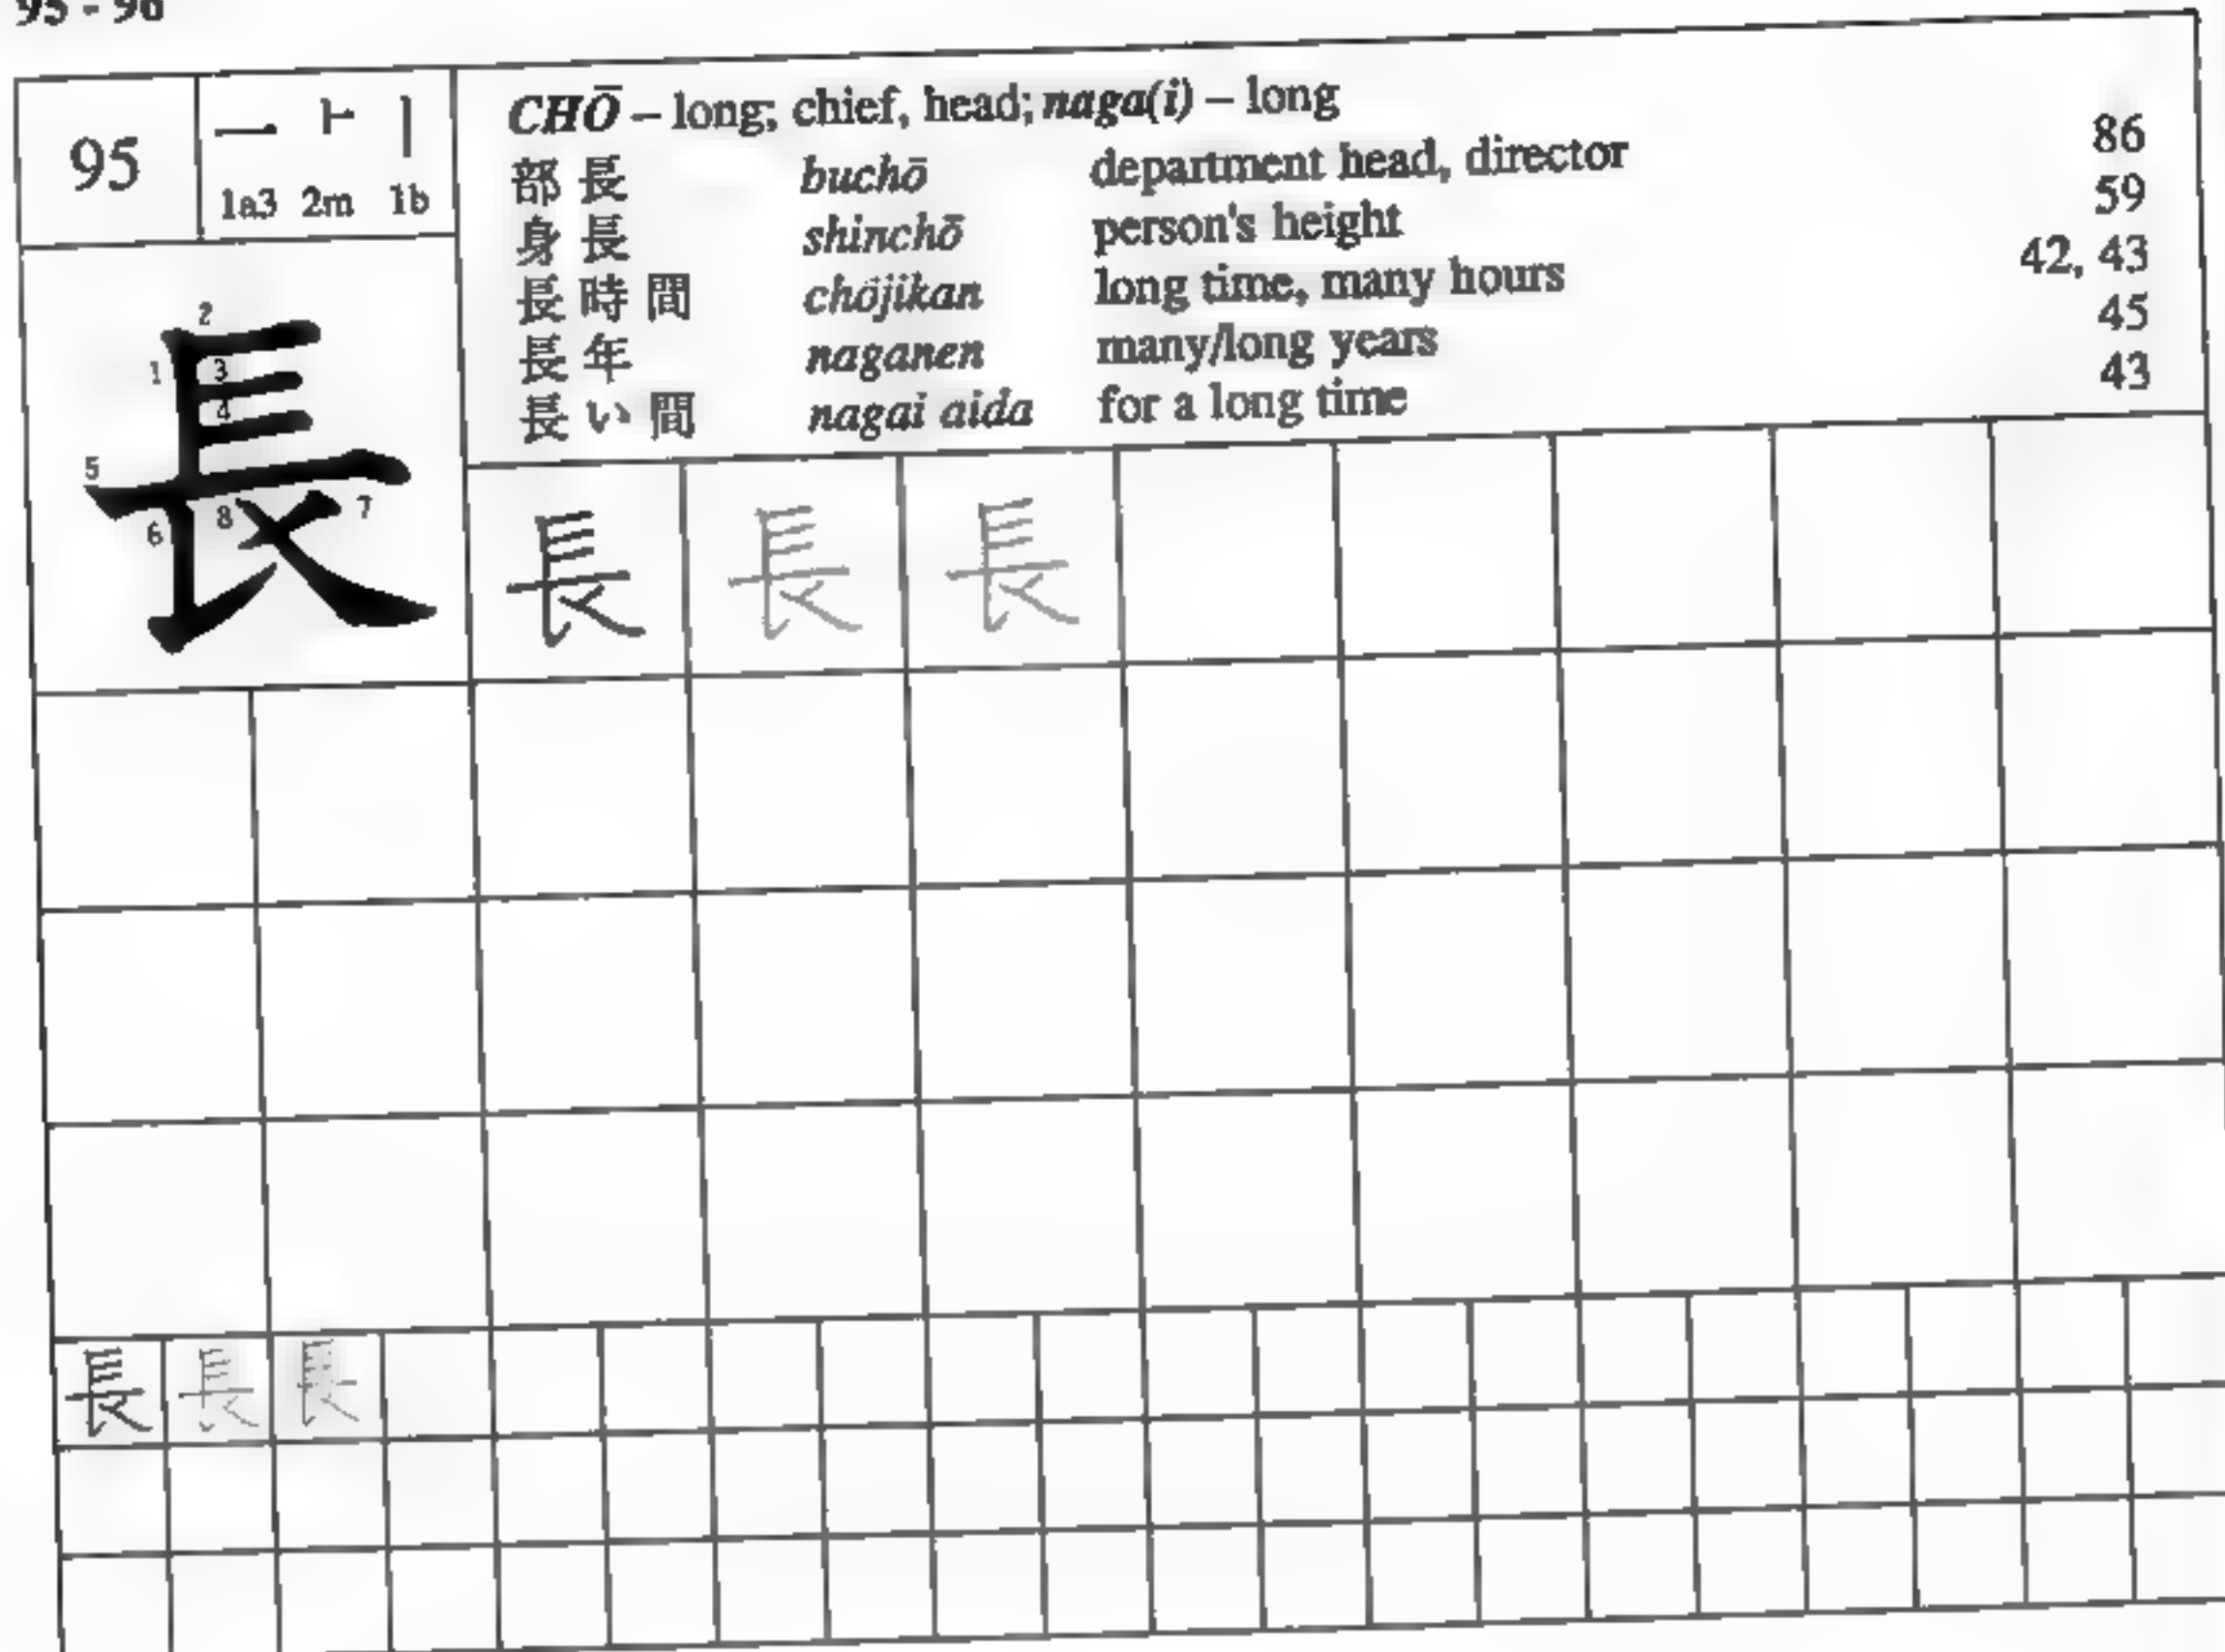 95 - 96
95
1a3 2m 1b
CHŌ – long; chief, head; naga(i) – long
部長 buchō department head, director 86
身長 shinchō person's height 59
長時間 chōjikan long time, many hours 42, 43
長年 naganen many/long years 45
長い間 nagai aida for a long time 43
1 2 3 4 5 6 7 8
長
長 長 長
長 長 長